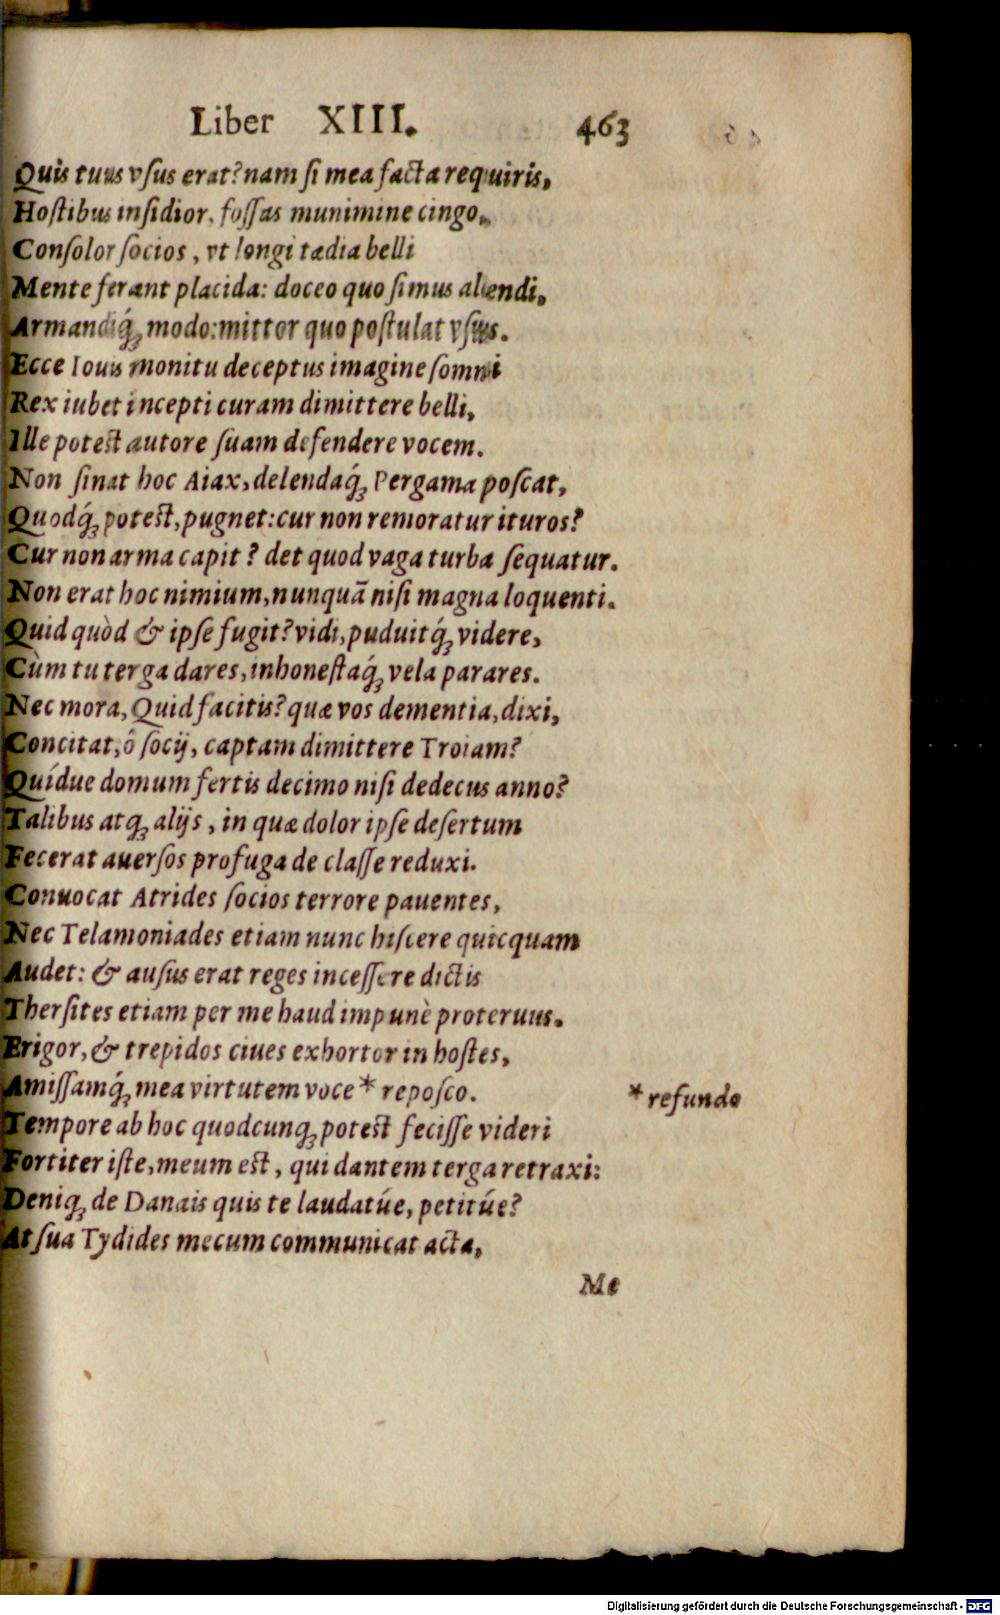 Liber XIII. 463
Quis tuus vſus erat? nam ſi mea facta requiris,
Hoſtibus inſidior, foſſas munimine cingo,
Conſolor ſocios, vt longi tædia belli
Mente ferant placida: doceo quo ſimus alendi,
Armandiq́; modo: mittor quo poſtulat vſus.
Ecce Iouis monitu deceptus imagine ſomni
Rex iubet incepti curam dimittere belli,
Ille poteſt autore ſuam defendere vocem.
Non ſinat hoc Aiax, delendaq́; Pergama poſcat,
Quodq́; poteſt, pugnet: cur non remoratur ituros?
Cur non arma capit? det quod vaga turba ſequatur.
Non erat hoc nimium, nunquā niſi magna loquenti.
Quid quòd & ipſe fugit? vidi, puduitq́; videre,
Cùm tu terga dares, inhoneſtaq́; vela parares.
Nec mora, Quid facitis? quæ vos dementia, dixi,
Concitat, ô ſocij, captam dimittere Troiam?
Quídue domum fertis decimo niſi dedecus anno?
Talibus atq; alijs, in quæ dolor ipſe deſertum
Fecerat auerſos profuga de claſſe reduxi.
Conuocat Atrides ſocios terrore pauentes,
Nec Telamoniades etiam nunc hiſcere quicquam
Audet: & auſus erat reges inceſſere dictis
Therſites etiam per me haud impunè proteruus.
Erigor, & trepidos ciues exhortor in hoſtes,
Amiſſamq́; mea virtutem voce * repoſco.
* refundo
Tempore ab hoc quodcunq; poteſt feciſſe videri
Fortiter iſte, meum eſt, qui dantem terga retraxi:
Deniq; de Danais quis te laudatúe, petitúe?
At ſua Tydides mecum communicat acta,
Me
Digitalisierung gefördert durch die Deutsche Forschungsgemeinschaft - DFG